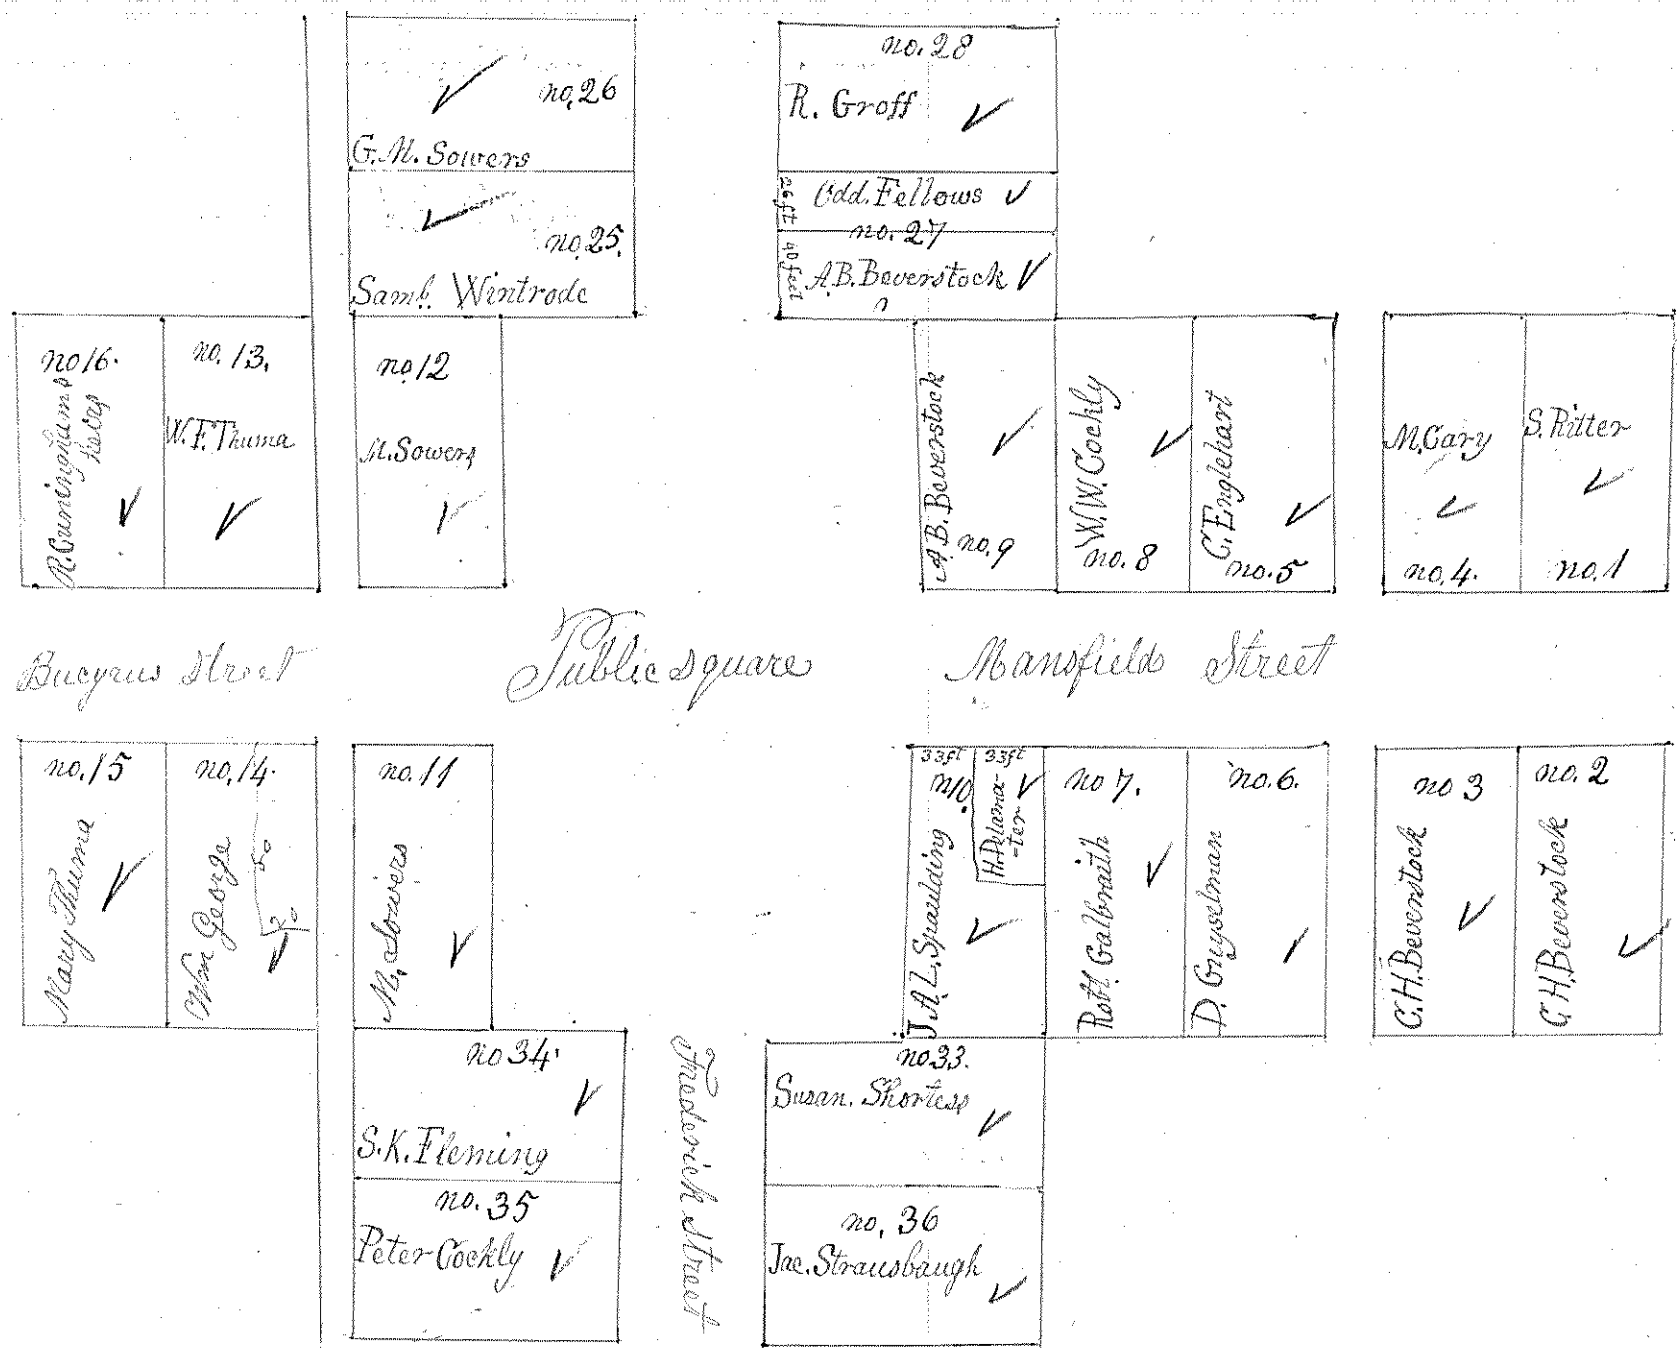 no. 26
G. M. Sowers
no. 25.
Saml. Wintrode
no. 28
R. Groff
26 ft
Odd. Fellows
no. 27
40 feet
A. B. Beverstock
no 16.
R. Cuninghams
heirs
no. 13.
W. F. Thuma
no 12
M. Sowers
A. B. Beverstock
no. 9
W. W. Cockly
no. 8
C. Englehart
no. 5
M. Cary
no. 4.
S. Ritter
no. 1
Bucyrus Street
Public square
Mansfield Street
no. 15
Mary Thuma
no. 14.
Wm George
50
no. 11
M. Sowers
33ft
n 10.
J. A. L. Spaulding
33ft
H. Delama-
-ter
no 7.
Robt. Galbraith
no. 6.
D. Guyselman
no 3
C. H. Beverstock
no. 2
C. H. Beverstock
no 34.
S. K. Fleming
no. 35
Peter Cockly
Frederick Street
no 33.
Susan. Shortess
no, 36
Jac. Strausbaugh